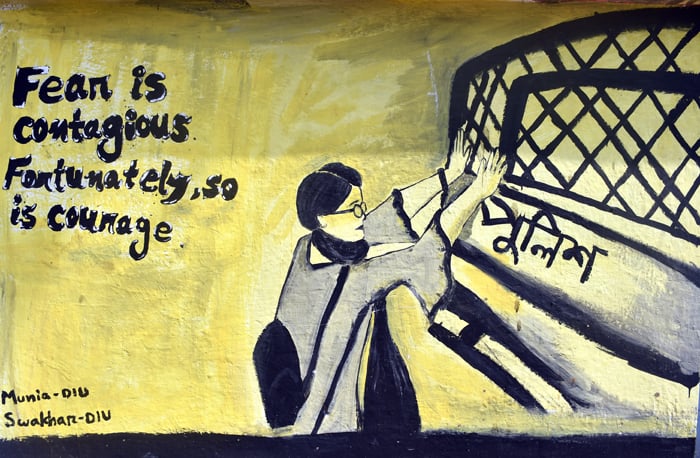 Fear is
contagious.
Fortunately, so
is courage
পুলিশ
Munia-DIU
Swakhar-DIU